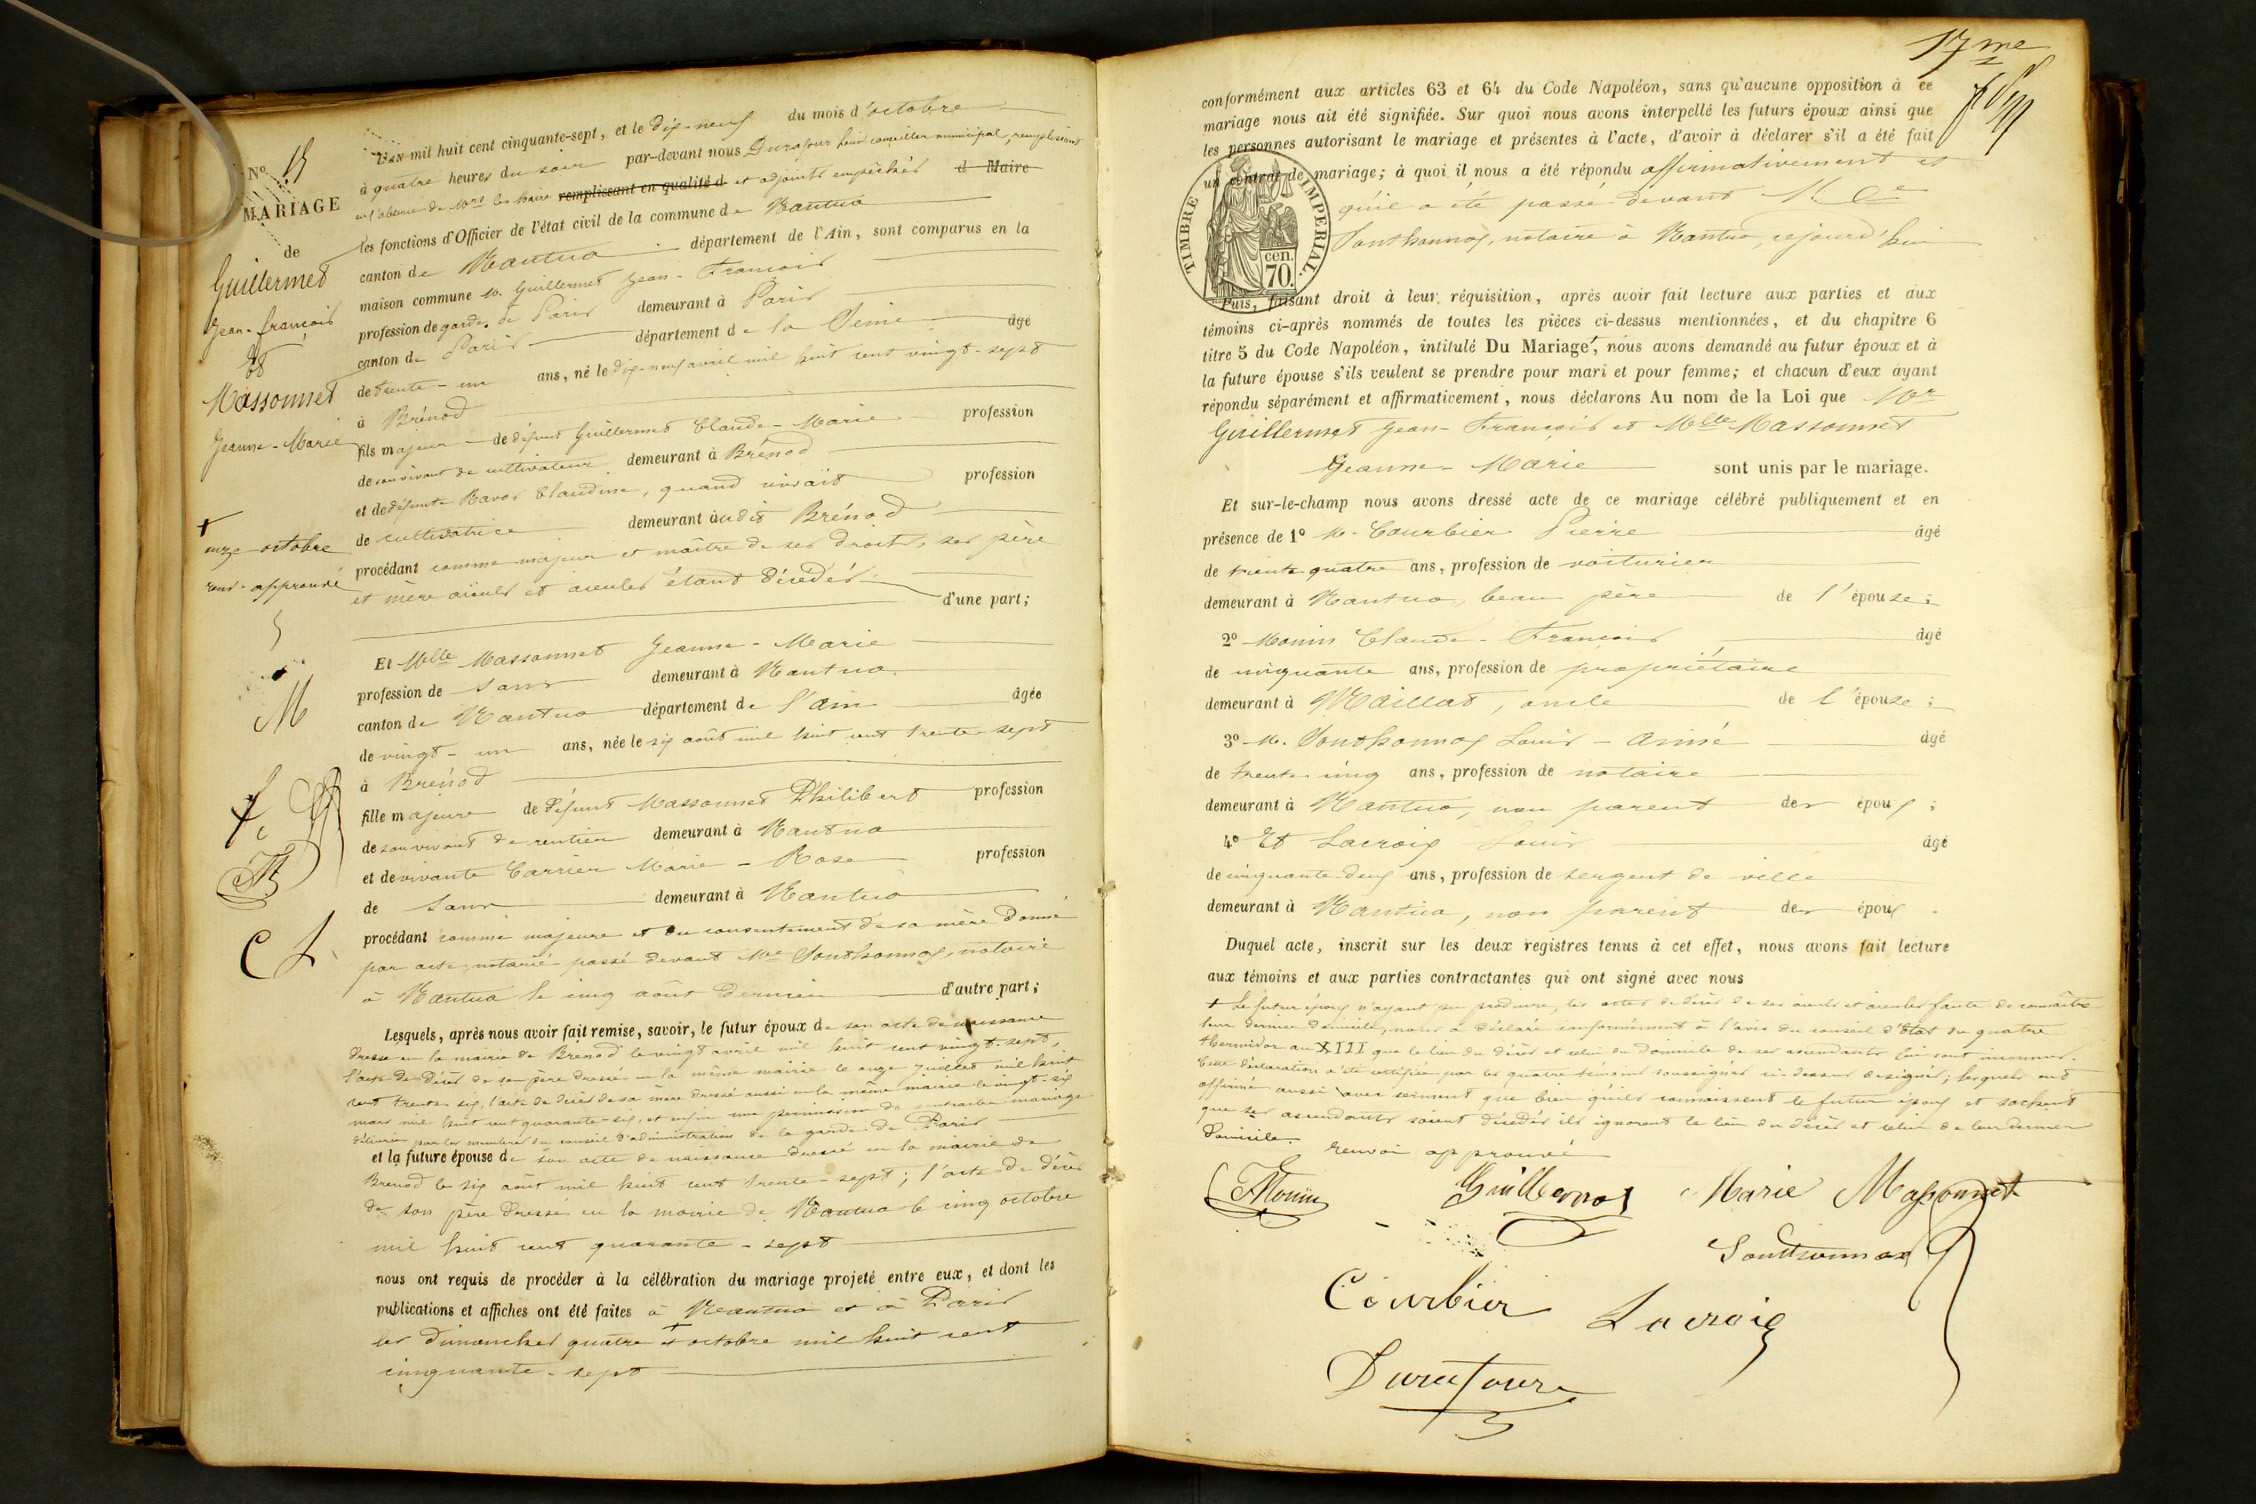 No 15
MARIAGE
de
Guillermet
Jean-françois
et
Massonnet
Jeanne-Marie
onze octobre
renv. approuvé
M
C L
L'AN mil huit cent cinquante-sept, et le dix-neuf du mois d'octobre
à quatre heures du soir par-devant nous Durafour conseiller municipal, remplissant
en l'absence de Mrs les maire remplissant en qualité d et adjoints empêchés d Maire
les fonctions d'Officier de l'état civil de la commune de Nantua
canton de Nantua département de l'Ain, sont comparus en la
maison commune M. Guillermet Jean-François
profession de garde de Paris demeurant à Paris
canton de Paris département de la Seine âgé
de trente-un ans, né le dix-neuf avril mil huit cent vingt-sept
à Brénod
fils majeur de défunt Guillermet Claude-Marie profession
de son vivant de cultivateur demeurant à Brénod
et de défunte Ravot Claudine, quand vivait profession
de cultivatrice demeurant audit Brénod
procédant comme majeur et maître de ses droits, ses père
et mère aïeuls et aïeules étant décédés d'une part;
Et Melle Massonnet Jeanne-Marie
profession de sans demeurant à Nantua
canton de Nantua département de l'Ain âgée
de vingt-un ans, née le six août mil huit cent trente-sept
à Brénod
fille majeure de défunt Massonnet Philibert profession
de son vivant de rentier demeurant à Nantua
et de vivante Carrier Marie-Rose profession
de sans demeurant à Nantua
procédant comme majeure et du consentement de sa mère donné
par acte notarié passé devant Me Sonthonnax, notaire
à Nantua le cinq août dernier d'autre part;
Lesquels, après nous avoir fait remise, savoir, le futur époux de son acte de naissance
dressé en la mairie de Brénod le vingt avril mil huit cent vingt-sept,
l'acte de décès de son père dressé en la même mairie le onze juillet mil huit
cent trente-six, l'acte de décès de sa mère dressé aussi en la même mairie le vingt-six
mars mil huit cent quarante-six, et enfin une permission de contracter mariage
délivrée par les membres du conseil d'administration de la garde de Paris
et la future épouse de son acte de naissance dressé en la mairie de
Brenod le six août mil huit cent trente-sept; l'acte de décès
de son père dressé en la mairie de Nantua le cinq octobre
mil huit cent quarante-sept
nous ont requis de procéder à la célébration du mariage projeté entre eux, et dont les
publications et affiches ont été faites à Nantua et à Paris
les dimanches quatre et + octobre mil huit cent
cinquante-sept
17me
conformément aux articles 63 et 64 du Code Napoléon, sans qu'aucune opposition à ce
mariage nous ait été signifiée. Sur quoi nous avons interpellé les futurs époux ainsi que
les personnes autorisant le mariage et présentes à l'acte, d'avoir à déclarer s'il a été fait
un contrat de mariage; à quoi il nous a été répondu affirmativement et
qu'il a été passé devant Me
Sonthonnax, notaire à Nantua, cejourd'hui
TIMBRE IMPERIAL.
cen.
70.
Puis, faisant droit à leur réquisition, après avoir fait lecture aux parties et aux
témoins ci-après nommés de toutes les pièces ci-dessus mentionnées, et du chapitre 6
titre 5 du Code Napoléon, intitulé Du Mariage, nous avons demandé au futur époux et à
la future épouse s'ils veulent se prendre pour mari et pour femme; et chacun d'eux ayant
répondu séparément et affirmativement, nous déclarons Au nom de la Loi que Mr
Guillermet Jean-François et Melle Massonnet
Jeanne-Marie sont unis par le mariage.
Et sur-le-champ nous avons dressé acte de ce mariage célébré publiquement et en
présence de 1° M. Courbier Pierre âgé
de trente quatre ans, profession de voiturier
demeurant à Nantua, beau père de l'épouse;
2° Monin Claude-François âgé
de cinquante ans, profession de propriétaire
demeurant à Maillat, oncle de l'épouse;
3° M. Sonthonnax Louis-Aimé âgé
de trente cinq ans, profession de notaire
demeurant à Nantua, non parent des époux;
4° Et Lacroix Louis âgé
de cinquante-deux ans, profession de sergent de ville
demeurant à Nantua, non parent des époux.
Duquel acte, inscrit sur les deux registres tenus à cet effet, nous avons fait lecture
aux témoins et aux parties contractantes qui ont signé avec nous
+ Le futur époux n'ayant pu produire, les actes de décès de ses aïeuls et aïeules faute de connaître
leur dernier domicile, nous a déclaré conformément à l'avis du conseil d'Etat du quatre
thermidor an XIII que le lieu du décès et celui du domicile de ses ascendants lui sont inconnus.
Cette déclaration a été certifiée par les quatre témoins soussignés ci-dessus désignés; lesquels ont
affirmé aussi avec serment que bien qu'ils connaissent le futur époux et sachent
que ses ascendants soient décédés ils ignorent le lieu du décès et celui de leur dernier
domicile. renvoi approuvé
Monin Guillermet Marie Massonnet
Sonthonnax
Courbier Lacroix
Durafour